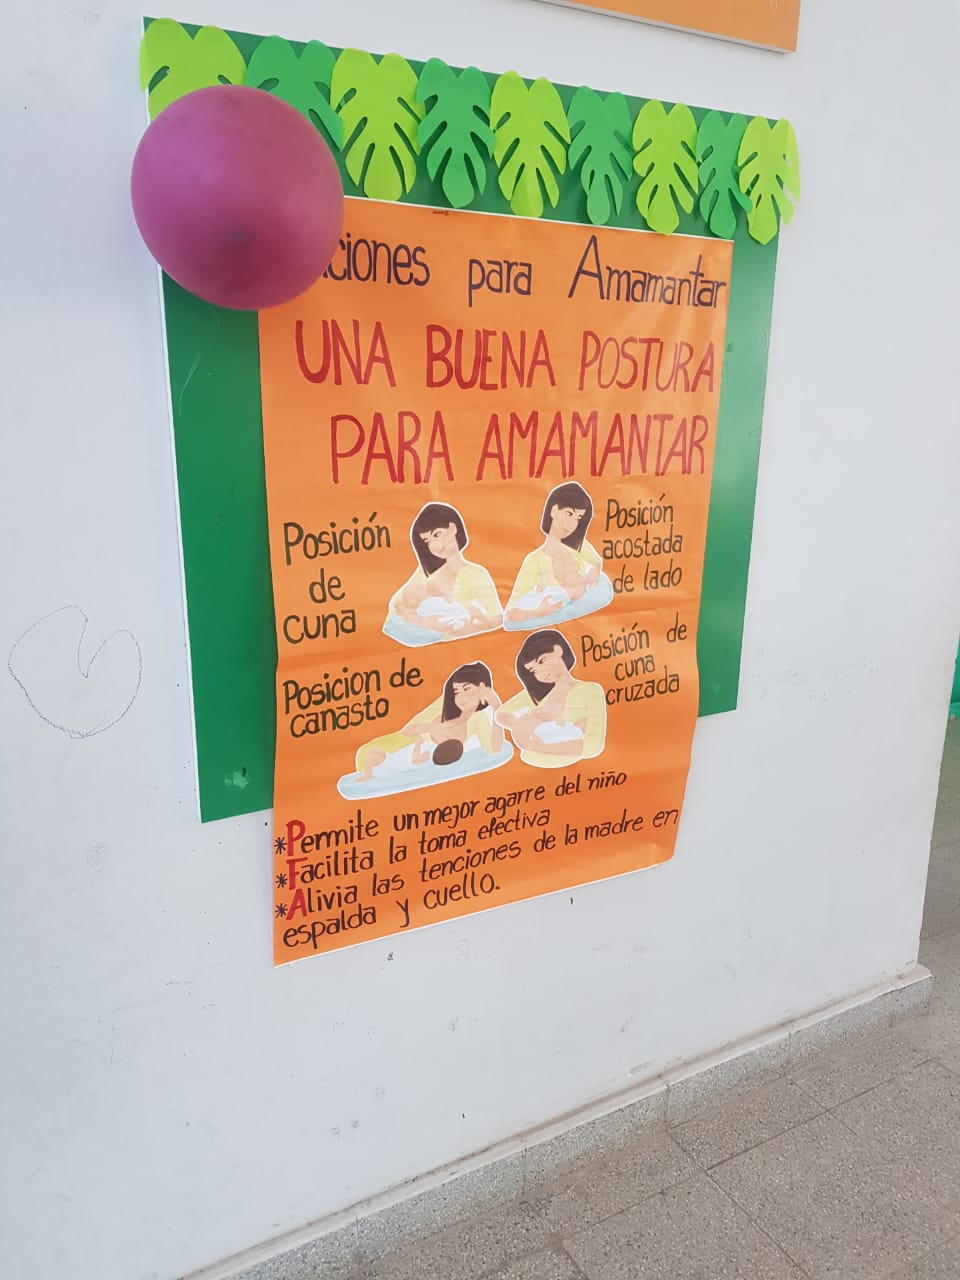 ciones para Amamantar
UNA BUENA POSTURA
PARA AMAMANTAR
Posición
de
cuna
Posición
acostada
de lado
Posicion de
canasto
Posición de
cuna
cruzada
*Permite un mejor agarre del niño
*Facilita la toma efectiva
*Alivia las tenciones de la madre en
espalda y cuello.